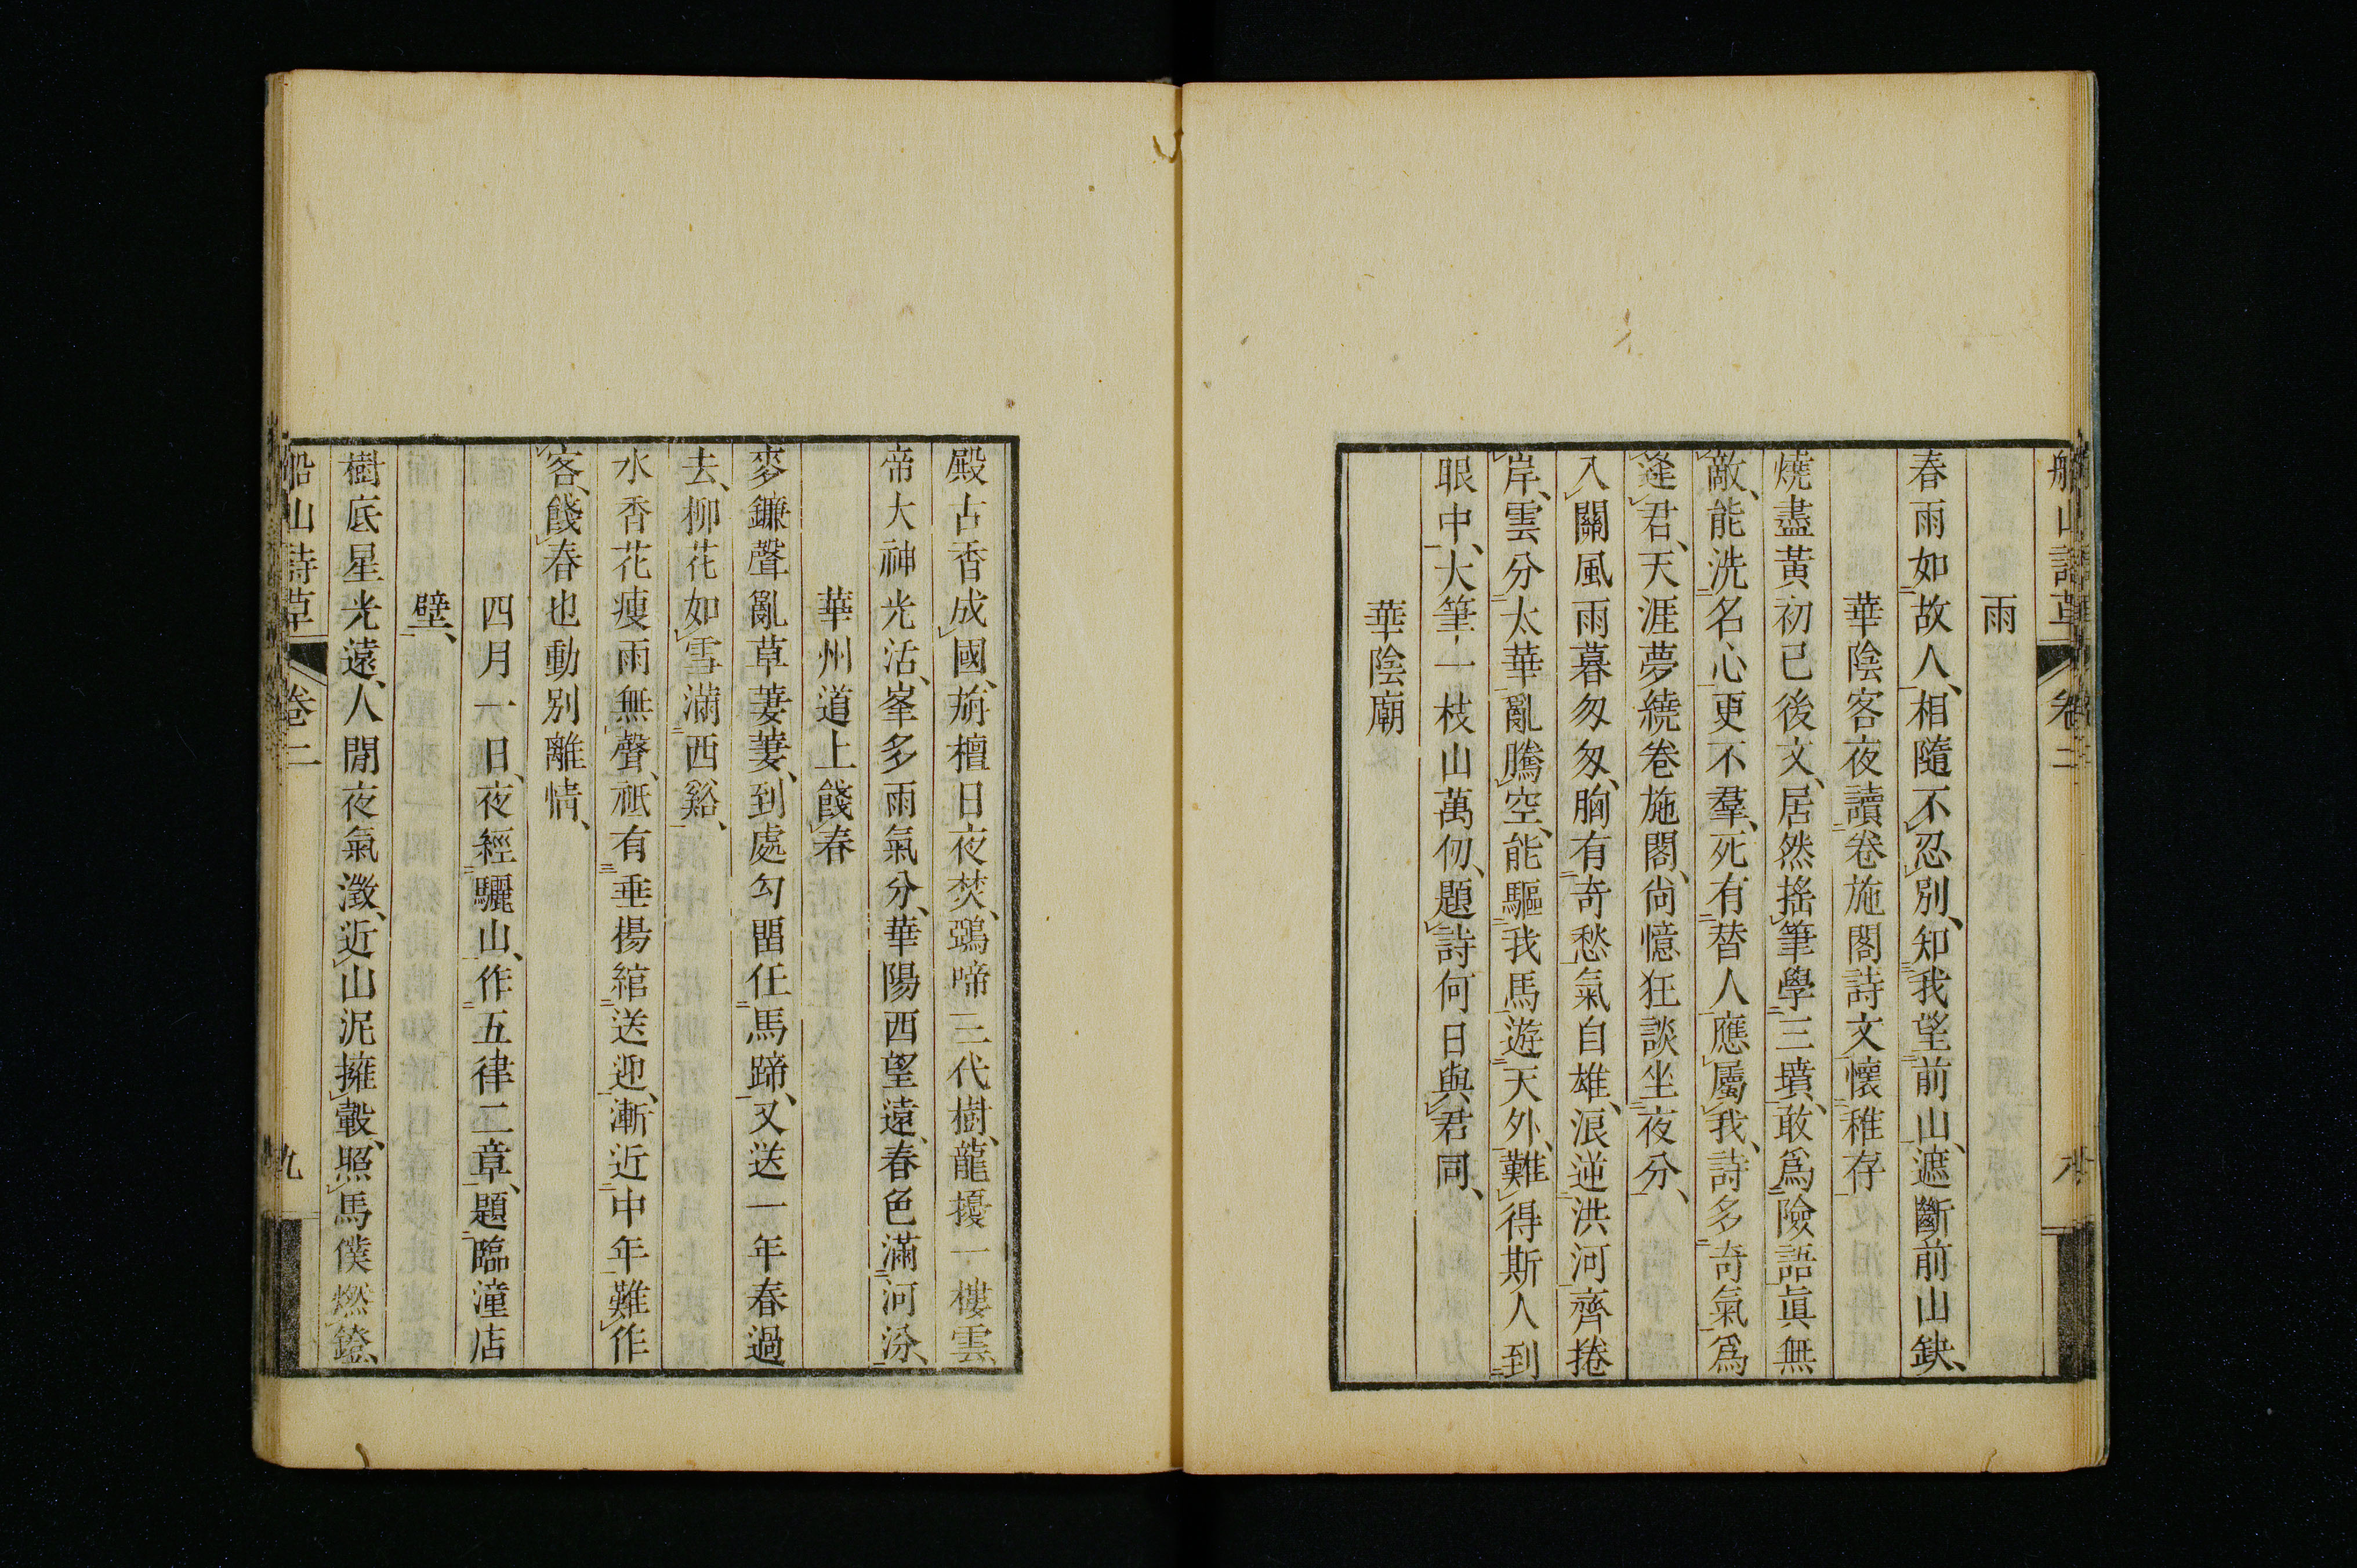 船山詩草 卷二 八
雨
春雨如故人、相隨不忍別、知我望前山、遮斷前山缺、
華陰客夜讀卷施閣詩文懷稚存
燒盡黃初已後文、居然搖筆學三墳、敢爲險語眞無
敵、能洗名心更不羣、死有替人應屬我、詩多奇氣爲
逢君、天涯夢繞卷施閣、尙憶狂談坐夜分、
入關風雨暮匆匆、胸有奇愁氣自雄、浪逆洪河齊捲
岸、雲分太華亂騰空、能驅我馬遊天外、難得斯人到
眼中、大筆一枝山萬仞、題詩何日與君同、
華陰廟
殿古香成國、旃檀日夜焚、鵶啼三代樹、龍擾一樓雲、
帝大神光活、峯多雨氣分、華陽西望遠、春色滿河汾、
華州道上餞春
麥鐮聲亂草萋萋、到處勾畱任馬蹄、又送一年春過
去、柳花如雪滿西谿、
水香花瘦雨無聲、祗有垂楊綰送迎、漸近中年難作
客、餞春也動別離情、
四月一日、夜經驪山、作五律二章、題臨潼店
壁、
樹底星光遠、人閒夜氣澂、近山泥擁轂、照馬僕燃鐙、
船山詩草 卷二 九